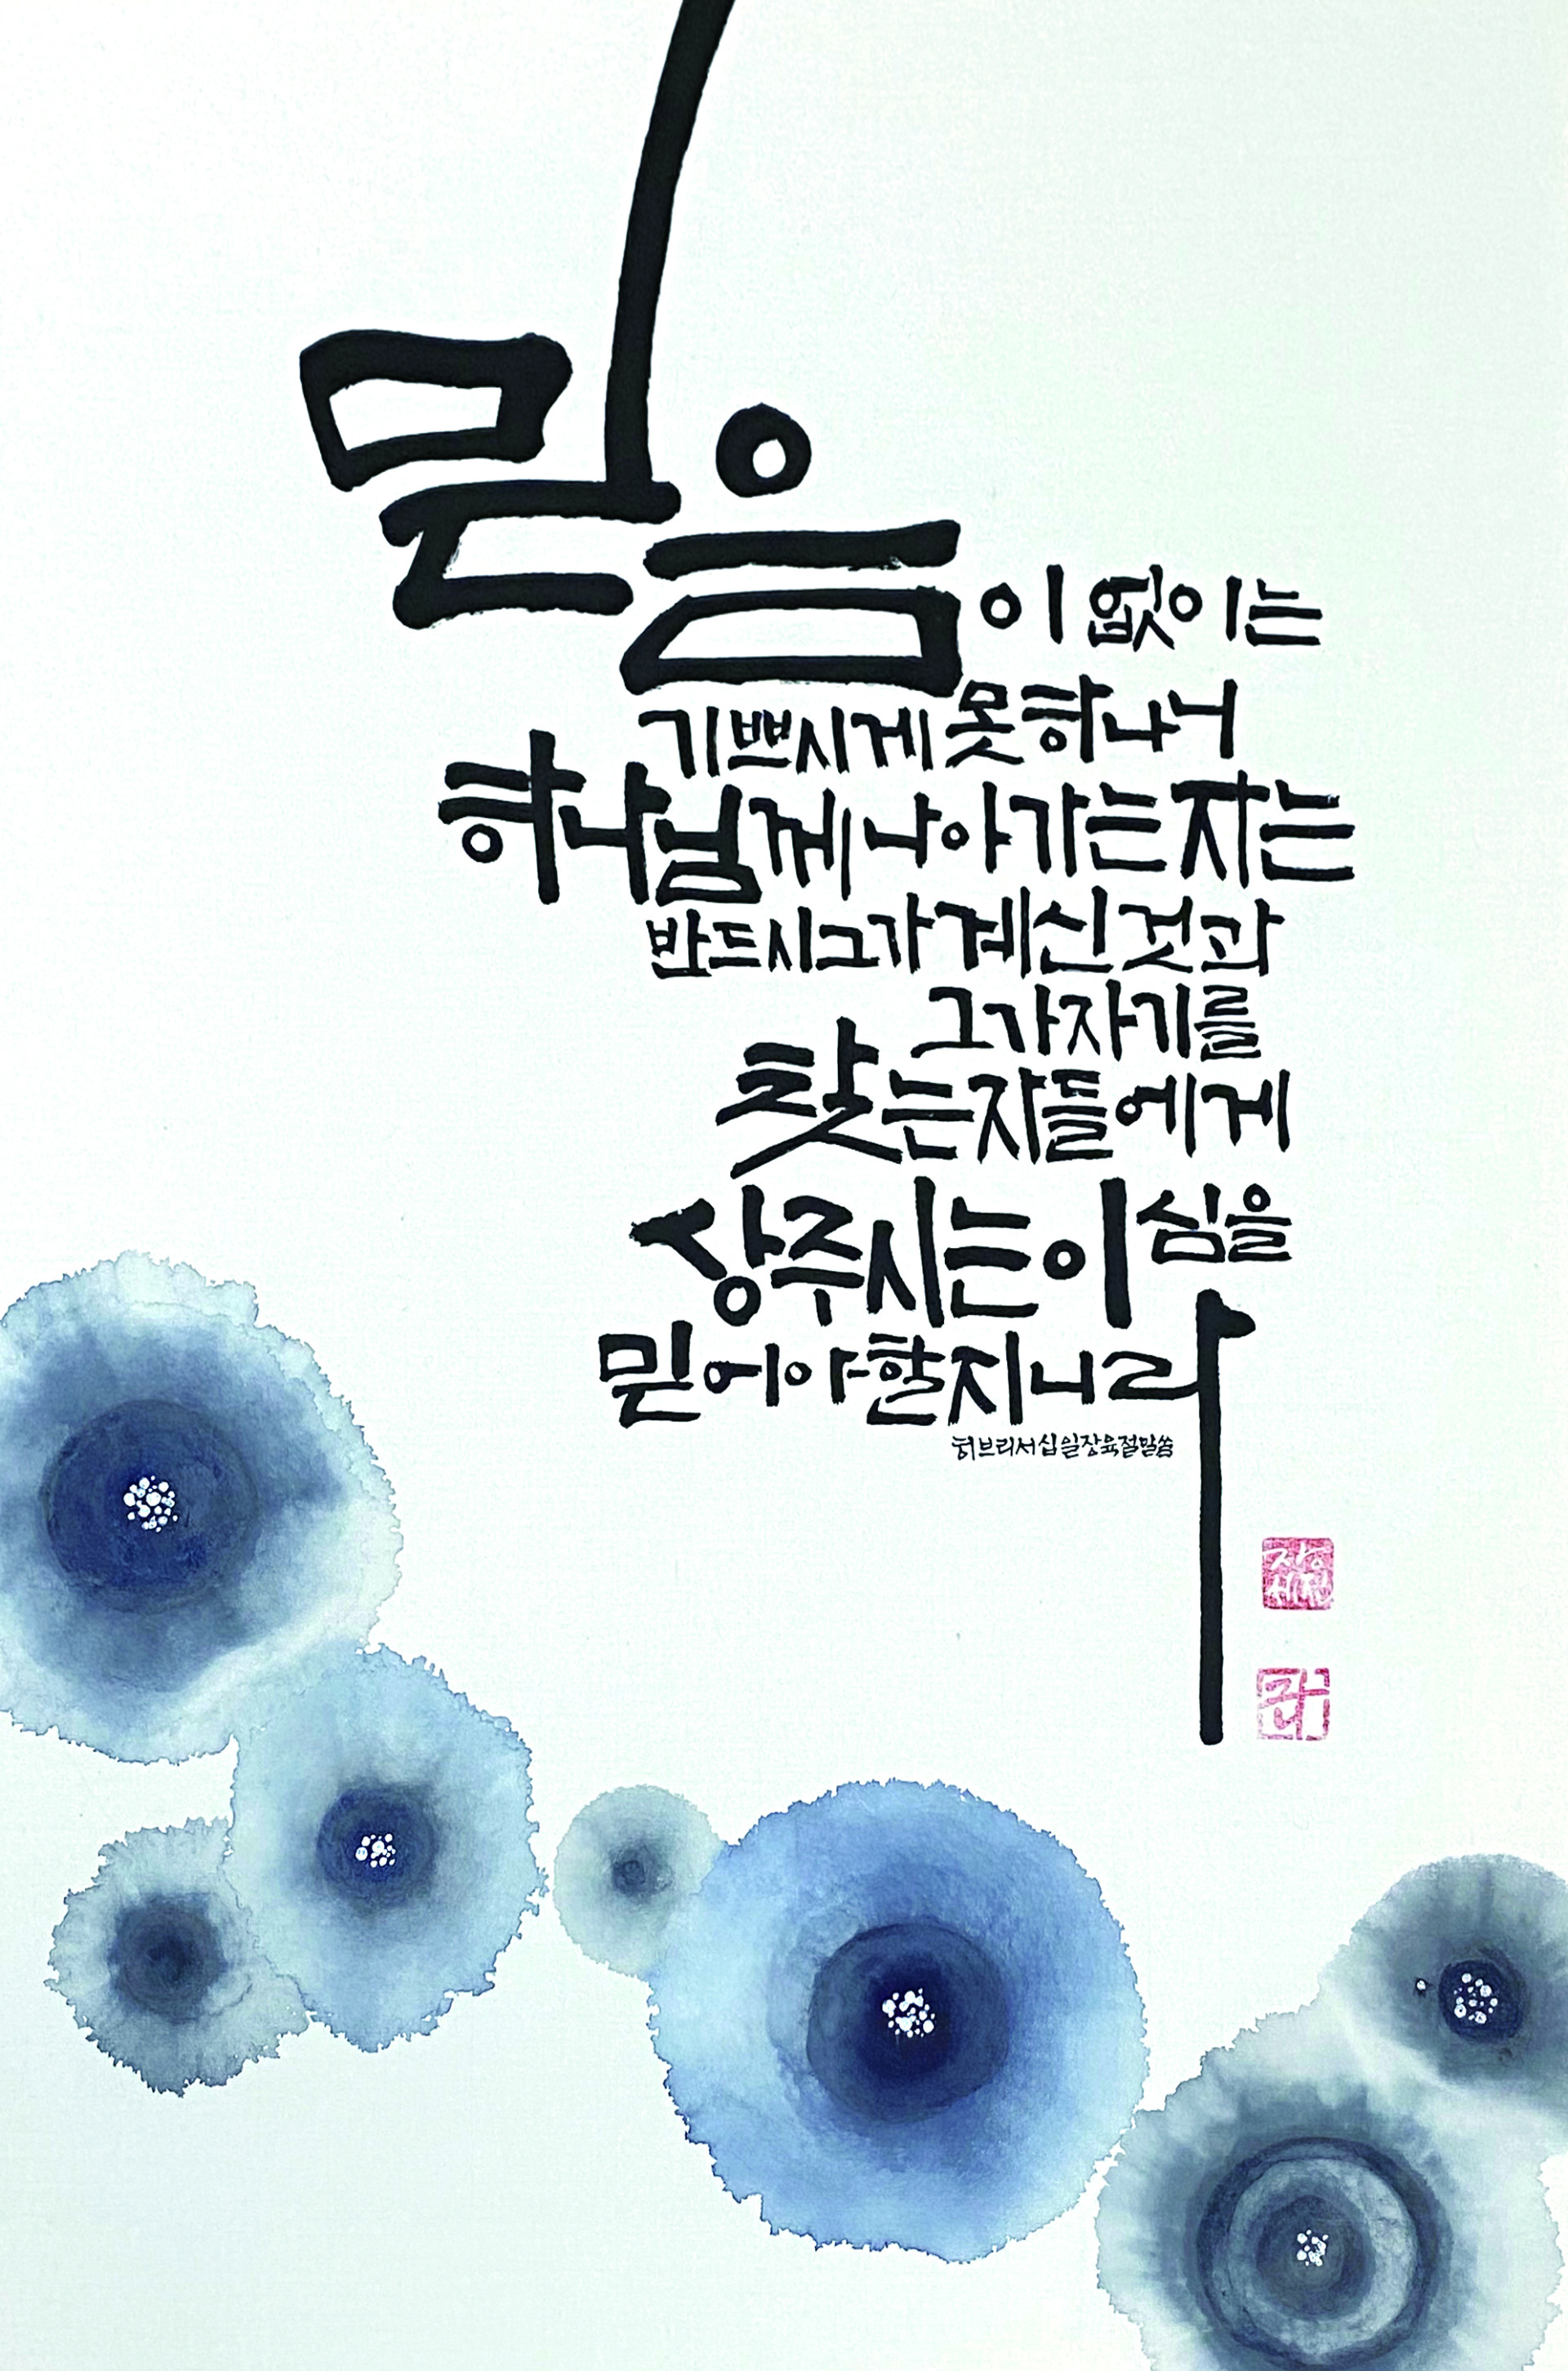 믿음이 없이는
기쁘시게 못하나니
하나님께 나아가는 자는
반드시 그가 계신 것과
그가 자기를
찾는 자들에게
상주시는 이심을
믿어야 할지니라
히브리서 십일장 육절 말씀